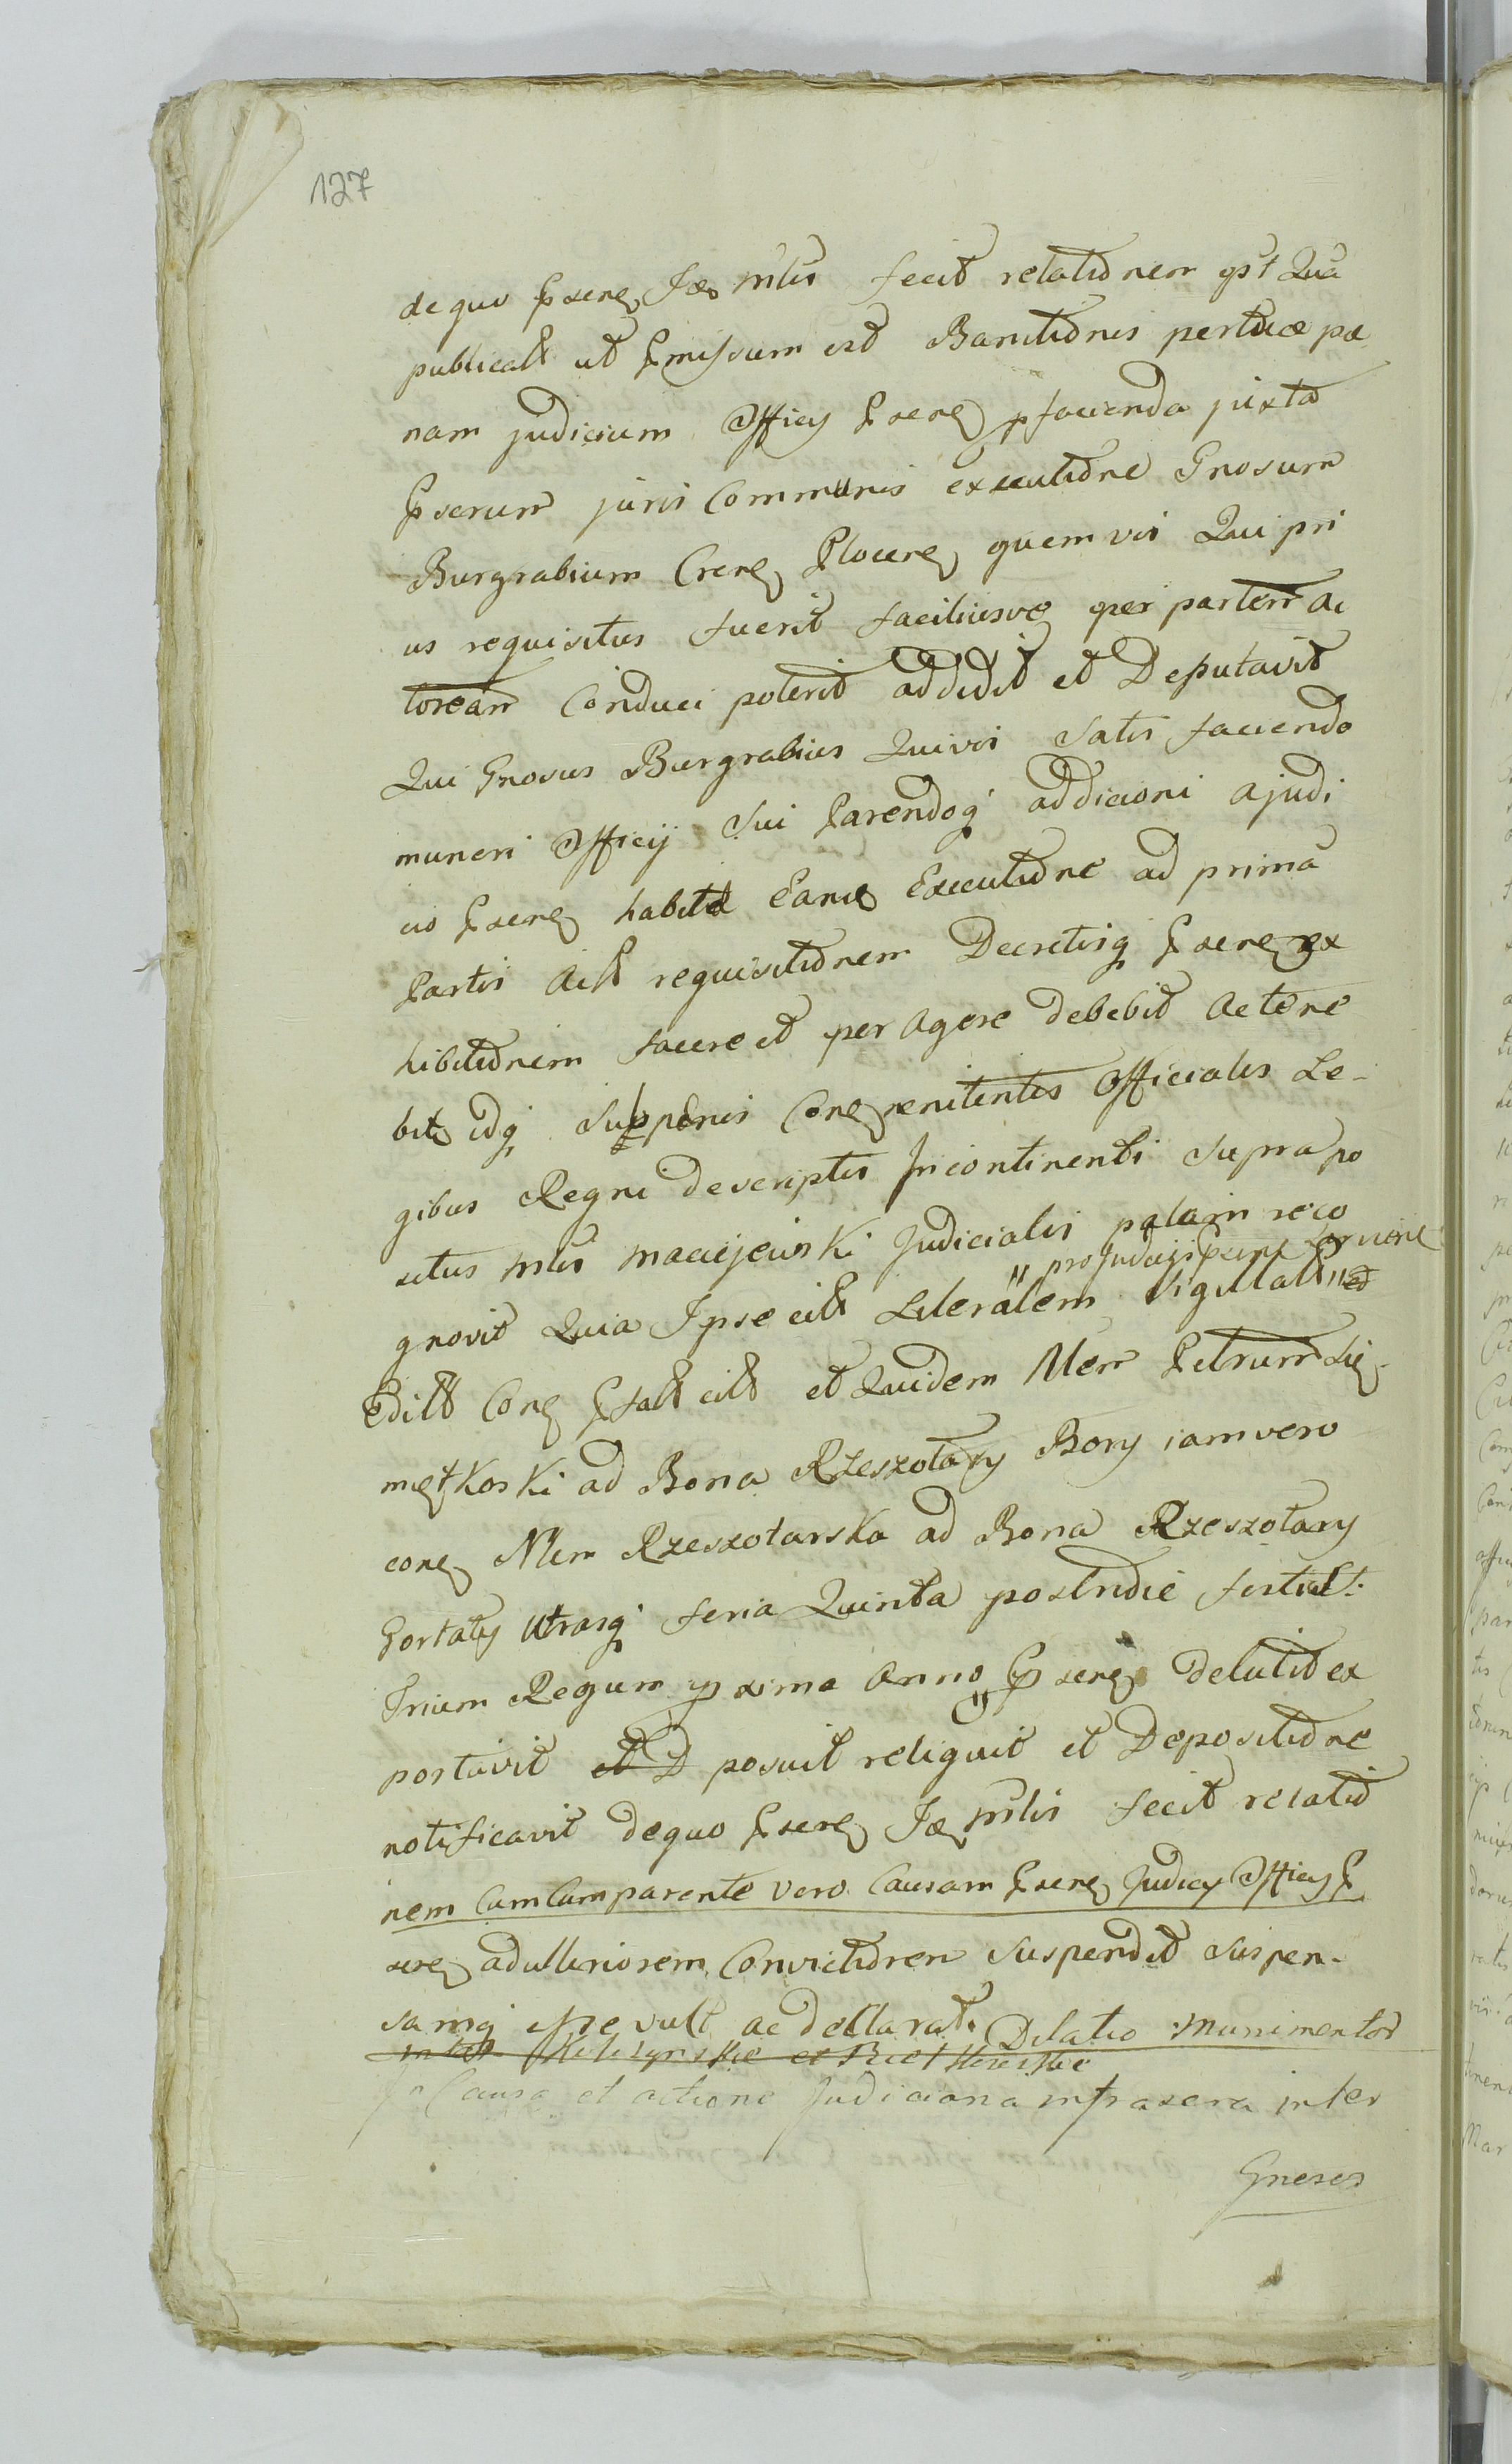 127
de quo Psens Jdo Mlis fecit relationem post Qua
publicatt ut Emissum est Banitionis pertuae pae
nam judicium Officy Psens pfacienda juxta
Pserum juris Communis executione Gnosum
Burgrabium Crens Plocens quemvis Qui pri
us requisitus fuerit faciliusve per partem ac
toream Conduci poterit addidit et Deputavit
Qui Gnosus Burgrabius Quivis Satis faciendo
muneri Officij sui Parendoq addicioni a judi
cio Psens habitae Eamq Executione ad prima
Partis Actt requisitionem Decretiq Psens ex
hibitionem facere et per Agere debebit Ac tene
bit idq Sub penis Conq renitentes Officiales Le-
gibus Regni descriptis Incontinenti Supra po
situs Mlis Maciejewski Judicialis palam reco
gnovit Quia Ipse citt Literalem " pro Judicijs Psent Sigillatt " et
Editt Conq citt et Quidem Mem Petrum Się
miętkoski ad Bona Rzeszotary Bory iam vero
conq Mem Rzeszotarska ad Bona Rzeszotary
Gortaty Utrasq feria Quinta postridie festi S:
Trium Regum pxime Anno Psens Detulit ex
portavit et D posuit reliquit et Depositione
notificavit de quo Psens Jdo Mlis fecit relatio
nem Cum Comparente vero Causam Psens Judicy Officy P
sens ad ulteriorem Convictionem Suspendit Suspen-
samq esse vult ac declarat. Dilatio Munimentor
In Causa et actione Judiciaria infrascra inter
Gnosos